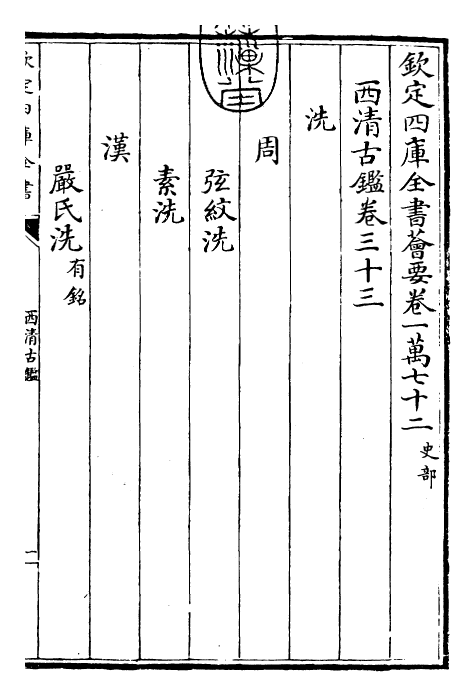 欽定四庫全書薈要卷一萬七十二 史部
西清古鑑卷三十三
洗
周
弦紋洗
素洗
漢
嚴氏洗 有銘
欽定四庫全書
西清古鑑
一